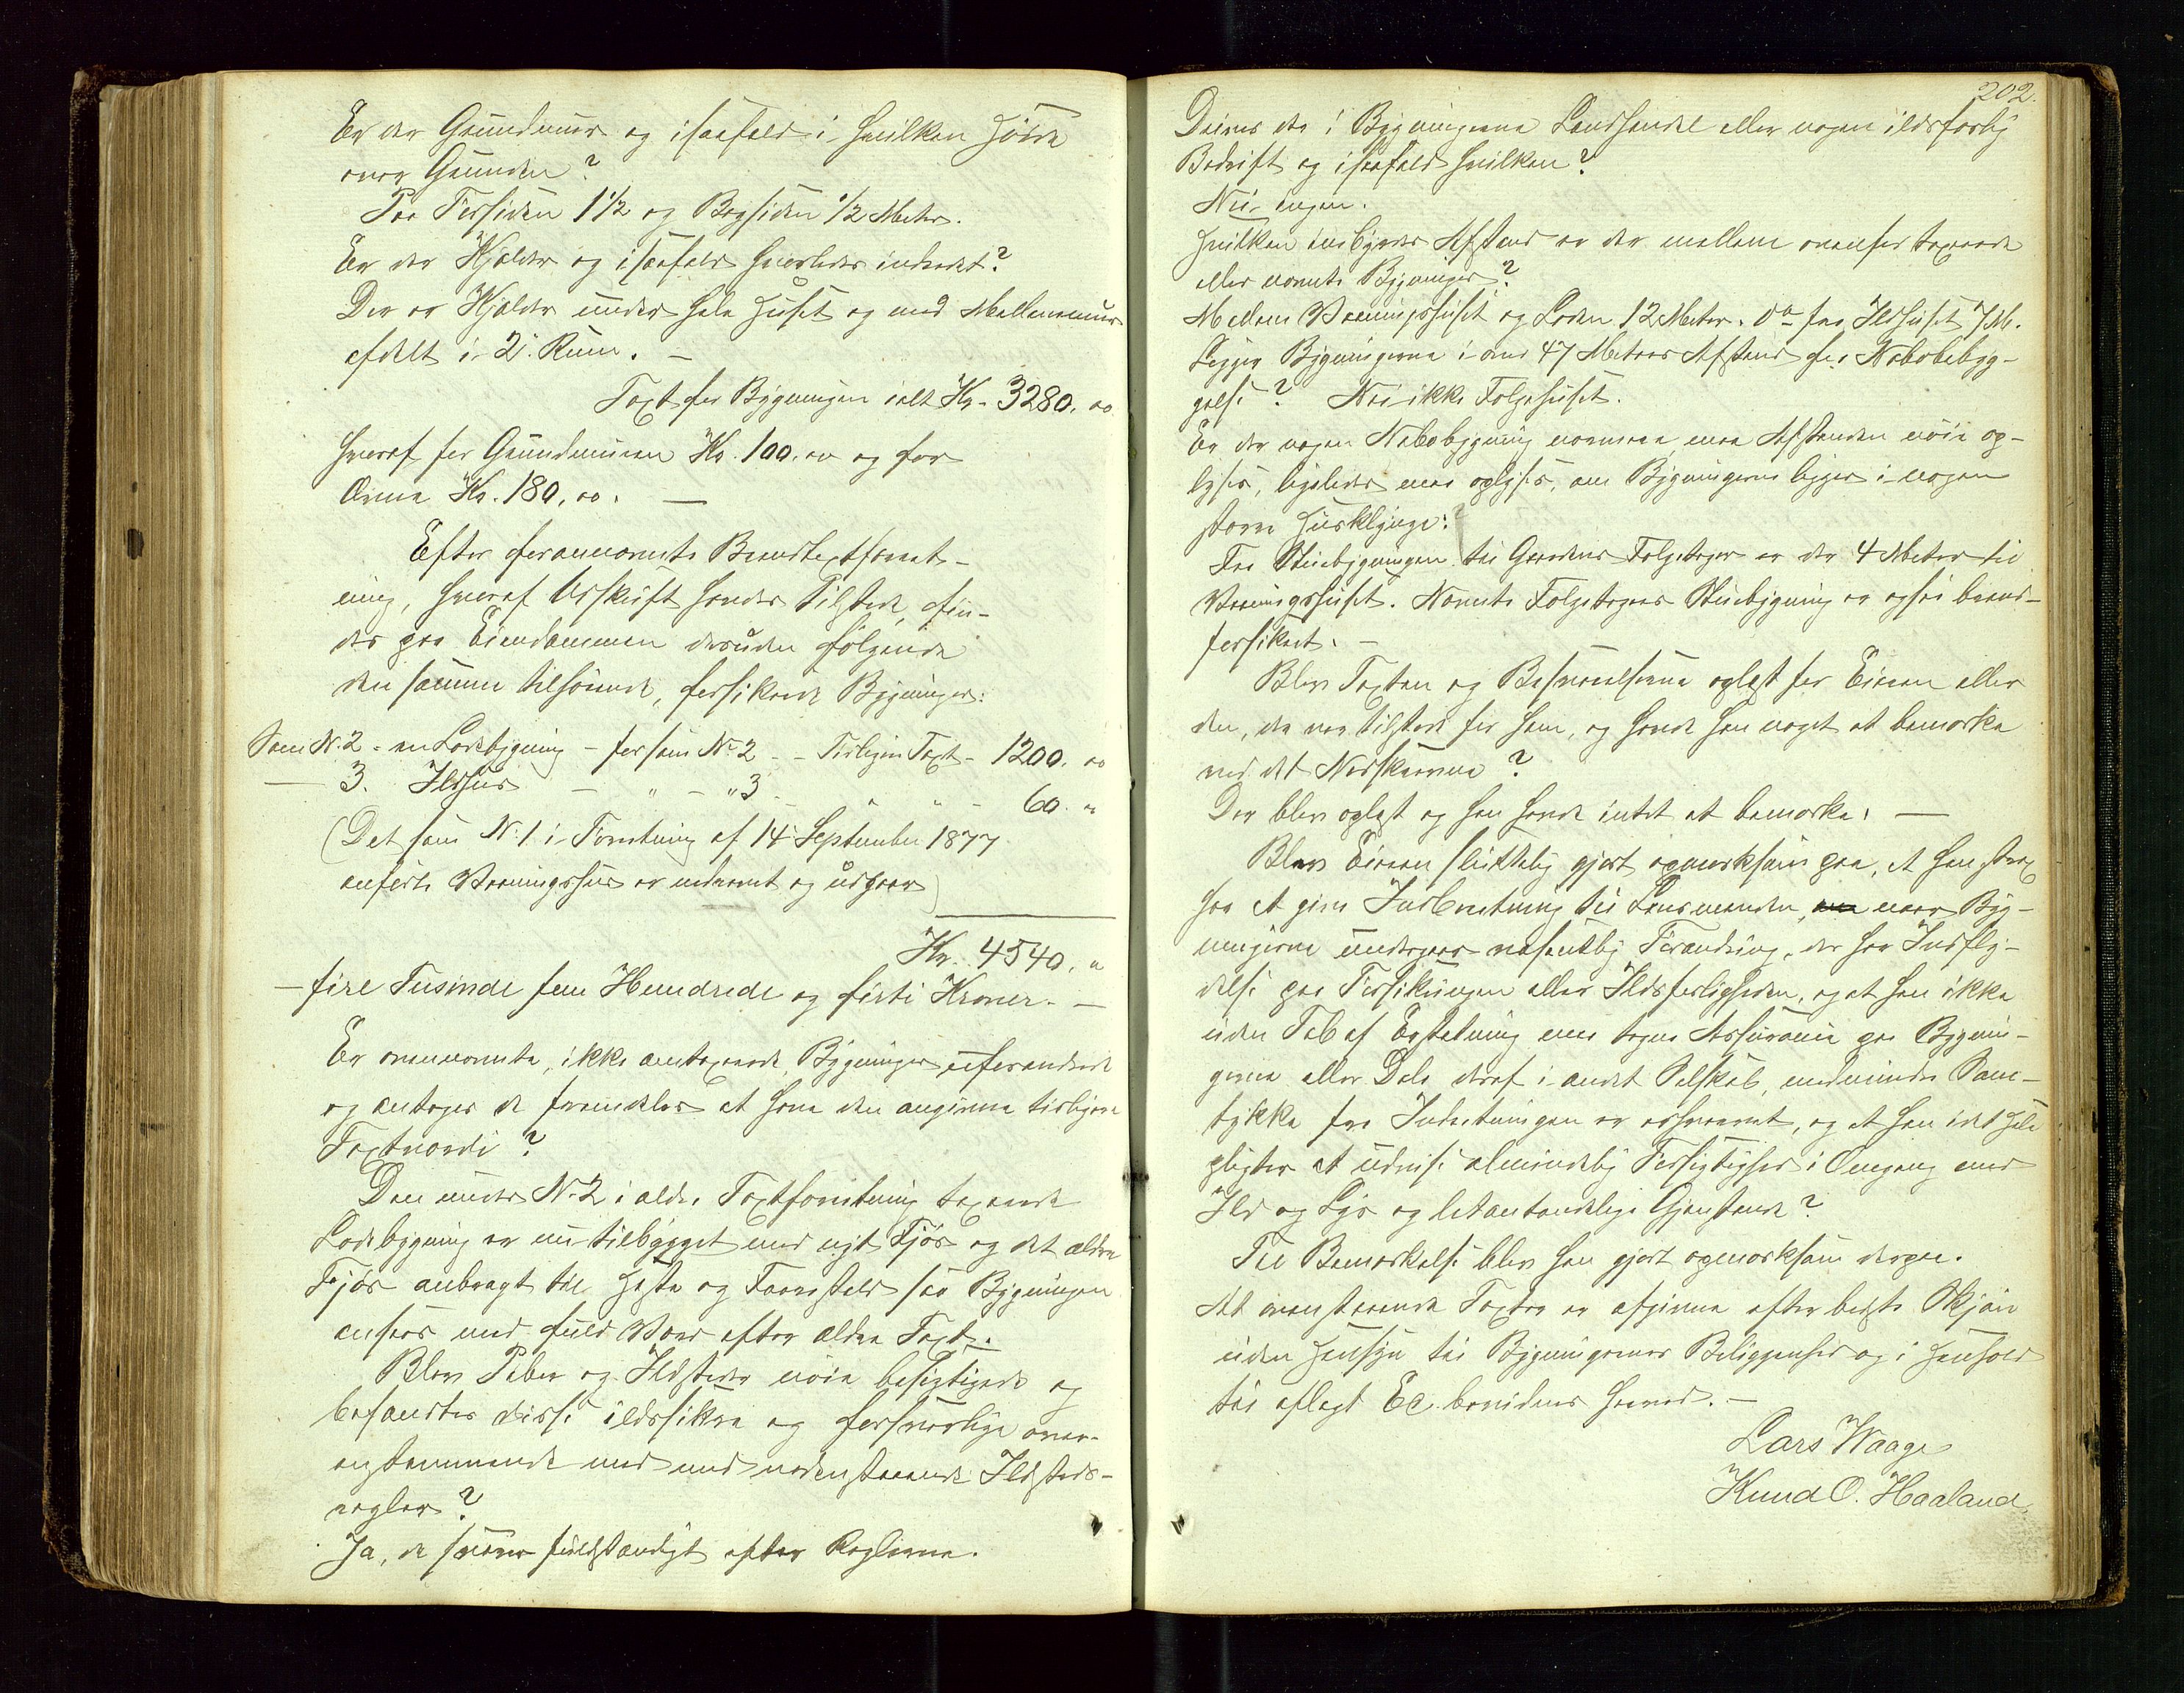 Er der Grundmur og isaafald i hvilken Høide
over Grunden?
Paa Forsiden 1 1/2 og Bagsiden 1/2 Meter.
Er der Kjælder og isaafald hvorledes indredet?
Der er Kjælder under hele Huset og med Mellemmur
afdelt i 2 Rum. —
Taxt for Bygningen ialt Kr. 3280. 00
hvoraf for Grundmuren Kr. 100. 00 og for
Ovne Kr. 180, 00. —
Efter forannævnte Brandtaxtforret-
ning, hvoraf Udskrift havdes tilstede, fin-
des paa Eiendommen desuden følgende
den samme tilhørende, forsikrede Bygninger:
Som N. 2 - en Ladebygning - før som No 2 - - Tidligere Taxt - 1200. 00
— 3. Ildhus — " — " 3 - " " - 60. "
(Det som N. 1 i Forretning af 14 September 1877
anførte Vaaningshus er nedrevet og udgaar)
Kr. 4540. "
— fire Tusinde fem Hundrede og firti Kroner. —
Er ovennævnte, ikke omtaxerede Bygninger uforandrede
og antages de fremdeles at have den angivne tidligere
Taxtværdi?
Den under No 2 i ældre Taxtforretning taxerede
Ladebygning er nu tilbygget med nyt Fjøs og det ældre
Fjøs anbragt til Heste og Faarestald saa Bygningen
ansees med fuld Værd efter ældre Taxt.
Blev Piber og Ildsteder nøie besigtigede og
befandtes disse ildssikre og forsvarlige over-
ensstemmende med med nedenstaaende Ildsteds-
regler?
Ja, de svarer fuldstændigt efter Reglerne.
202.
Drives der i Bygningerne Landhandel eller nogen ildsfarlig
Bedrift og isaafald hvilken?
Nei ingen.
Hvilken indbyrdes Afstand er der mellem ovenfor taxerede
eller nævnte Bygninger?
Mellem Vaaningshuset og Laden 12 Meter. Do fra Ildhuset 7 M.
Ligger Bygningerne i over 47 Meters Afstand fra Nabobebyg-
gelse? Nei ikke Folgehuset.
Er der nogen Nabobygning nærmere maa Afstanden nøie op-
lyses, ligeledes maa oplyses, om Bygningerne ligger i nogen
større Husklynge:?
Fra Stuebygningen til Gaardens Folgetager er der 4 Meter til
Vaaningshuset. Nævnte Folgetagers Stuebygning er ogsaa brand-
forsikret. —
Blev Taxten og Besvarelserne oplæst for Eieren eller
den, der var tilstede for ham, og havde han noget at bemærke
ved det Nedskrevne?
Der blev oplæst og han havde intet at bemærke. —
Blev Eieren skriftelig gjort opmærksom paa, at han strax
har at give Indberetning til Lensmanden, naar Byg-
ningerne undergaar væsentlig Forandring, der har Indfly-
delse paa Forsikringen eller Ildsfarligheden, og at han ikke
uden Tab af Erstatning maa tegne Assurance paa Bygnin-
gerne eller Dele deraf i andet Selskab, medmindre Sam-
tykke fra Indretningen er erhvervet, og at han idet Hele
pligter at udvise almindelig Forsigtighed i Omgang med
Ild og Lys og letantændelige Gjenstande?
Til Bemærkelse blev han gjort opmærksom derpaa.
At ovenstaaende Taxter er afgivne efter bedste Skjøn
uden Hensyn til Bygningernes Beliggenhed og i Henhold
til aflagt Ed bevidnes herved. —
Lars Waage
Knud O. Haaland